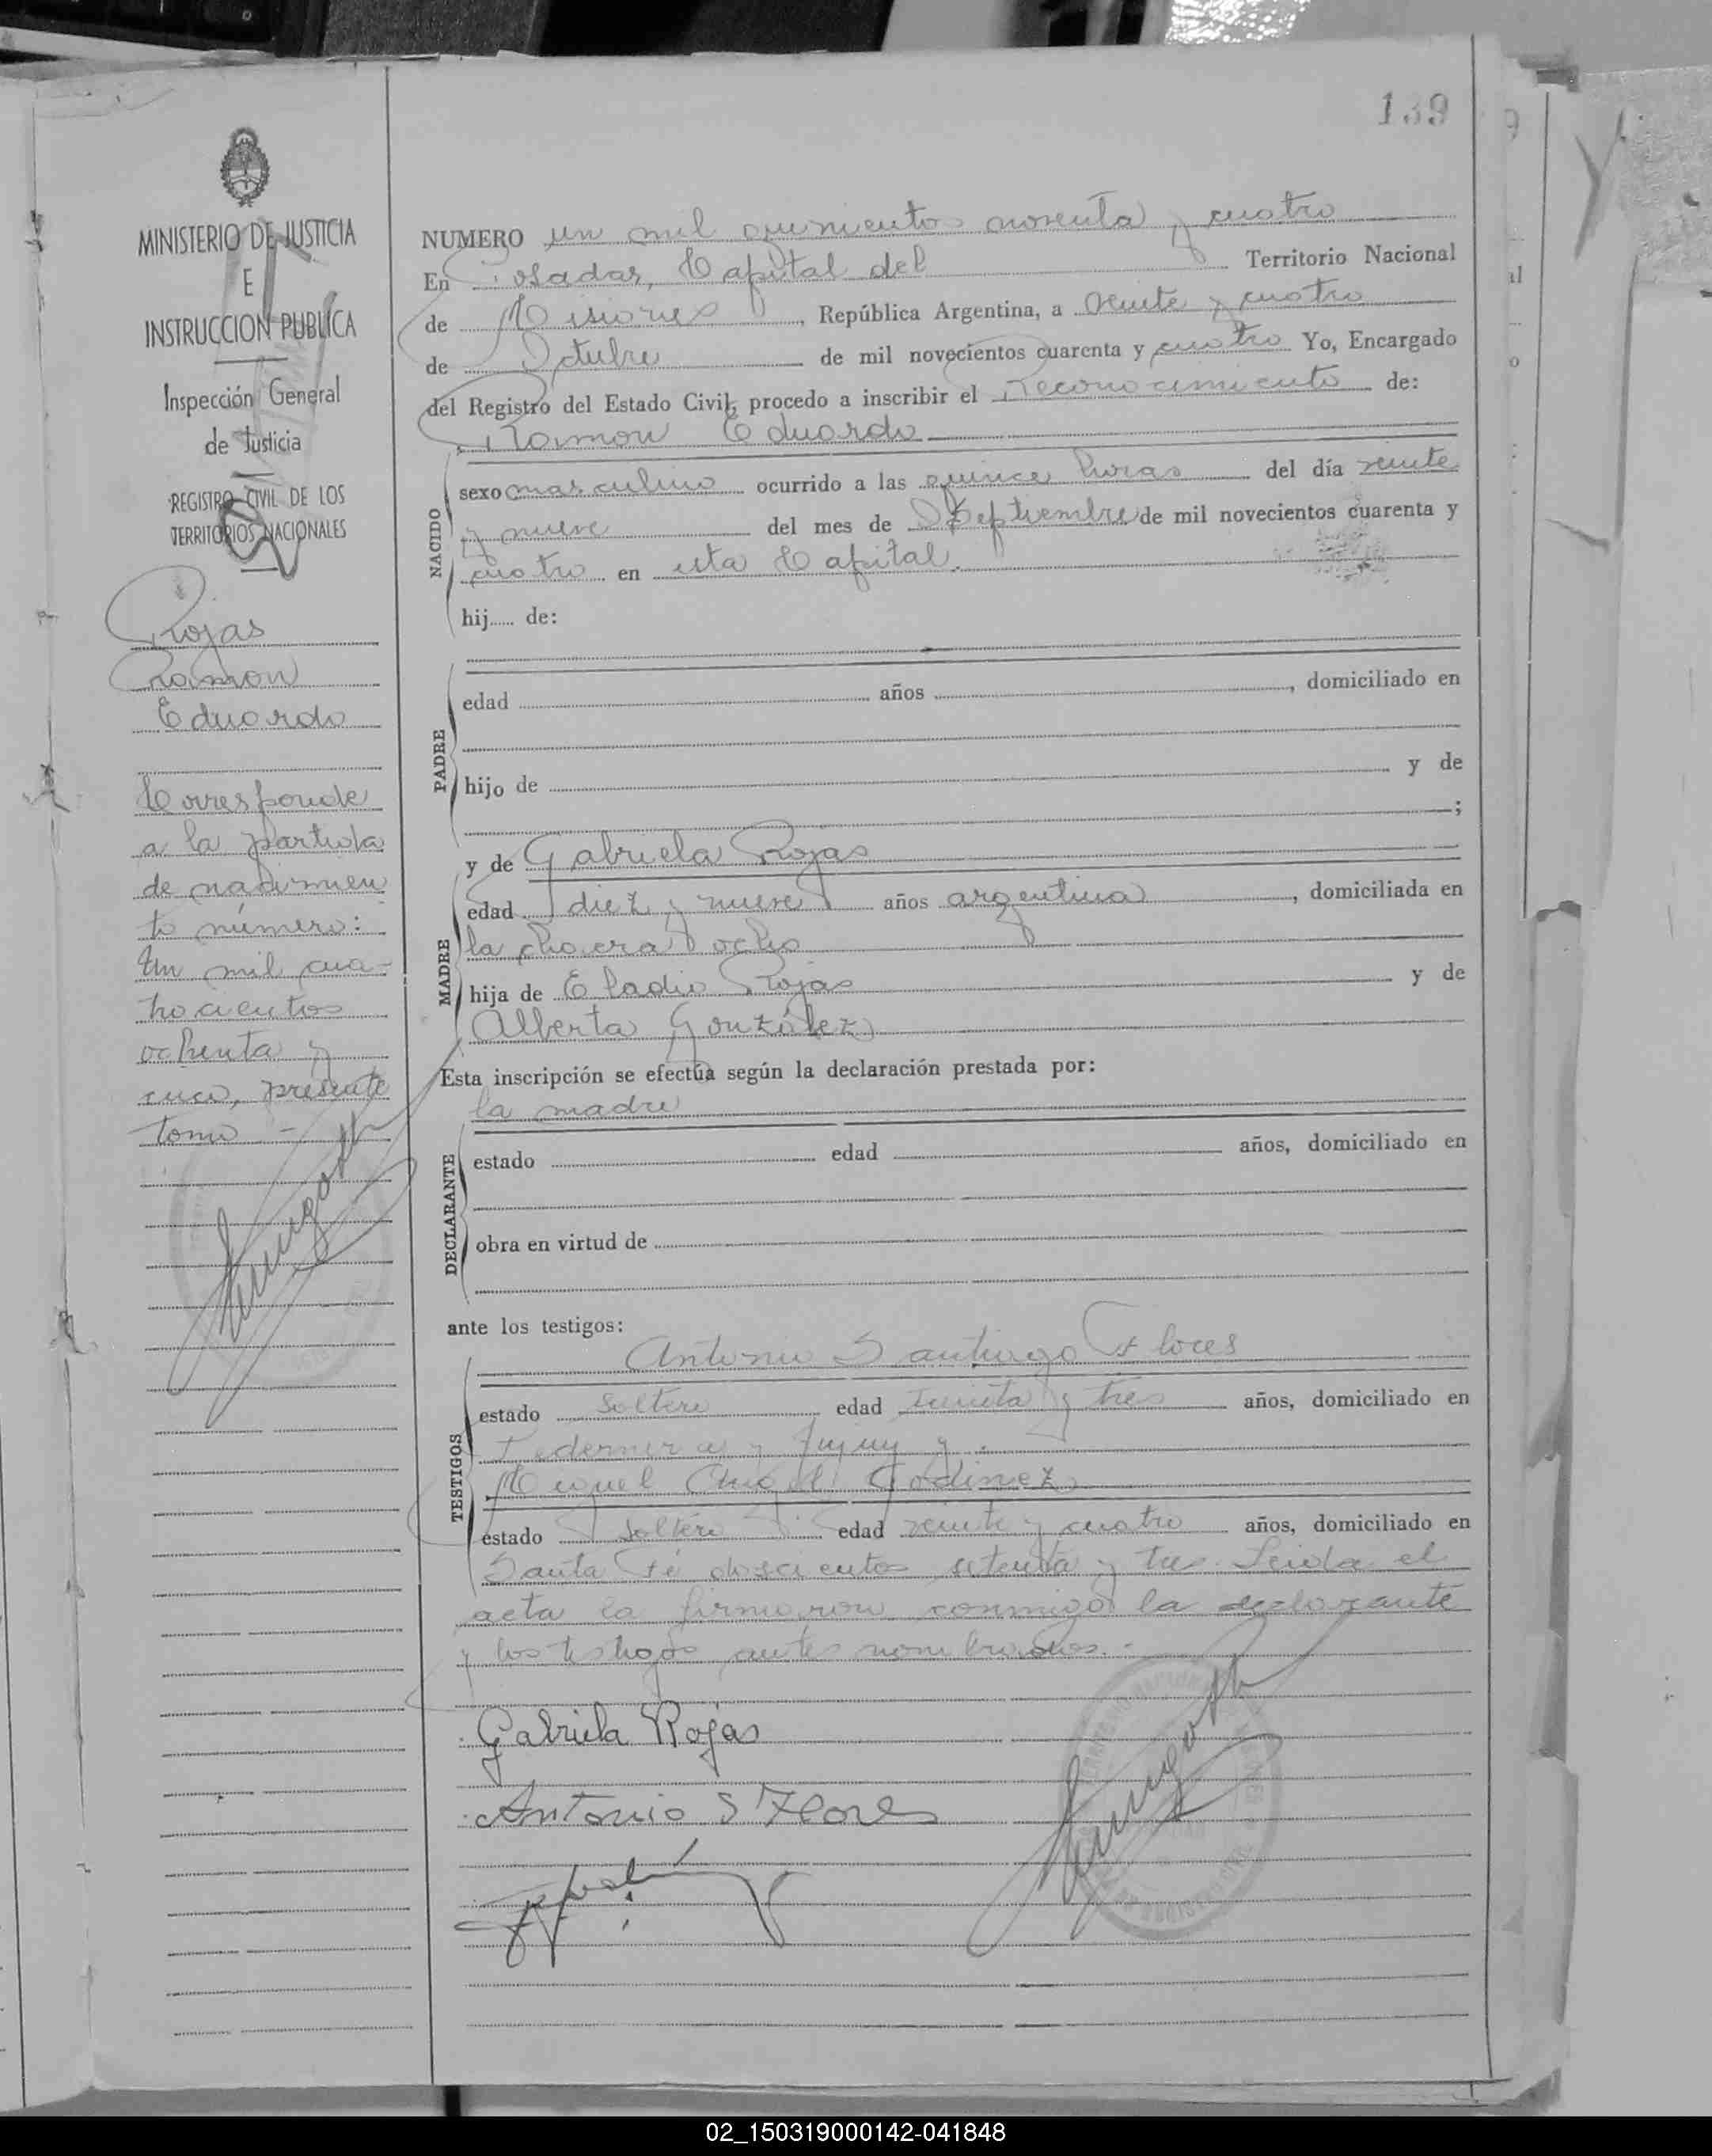 139
MINISTERIO DE JUSTICIA
E
INSTRUCCION PUBLICA
Inspección General
de Justicia
REGISTRO CIVIL DE LOS
TERRITORIOS NACIONALES
Rojas
Ramon
Eduardo
Corresponde
a la partida
de nacimien
to número:
Un mil cua-
trocientos
ochenta y
cinco, presente
tomo -
NUMERO un mil quinientos noventa y cuatro
En Posadas, Capital del Territorio Nacional
de Misiones, República Argentina, a veinte y cuatro
de Octubre de mil novecientos cuarenta y cuatro Yo, Encargado
del Registro del Estado Civil, procedo a inscribir el reconocimiento de:
Ramon Eduardo
NACIDO
sexo masculino ocurrido a las quince horas del día veinte
y nueve del mes de Septiembre de mil novecientos cuarenta y
cuatro en esta Capital.
hij..... de:
PADRE
edad años , domiciliado en
hijo de y de
;
MADRE
y de Gabriela Rojas
edad diez y nueve años argentina, domiciliada en
la chacra ocho
hija de Eladio Rojas y de
Alberta González
Esta inscripción se efectúa según la declaración prestada por:
la madre
DECLARANTE
estado edad años, domiciliado en
obra en virtud de
ante los testigos:
TESTIGOS
Antonio Santiago Flores
estado soltero edad treinta y tres años, domiciliado en
Pedernera y Jujuy y.
Miguel Angel Godinez
estado soltero edad veinte y cuatro años, domiciliado en
Santa Fé doscientos setenta y tres. Leida el
acta la firmaron conmigo la declarante
y los testigos antes nombrados.-
Gabriela Rojas
Antonio S Flores
02_150319000142-041848